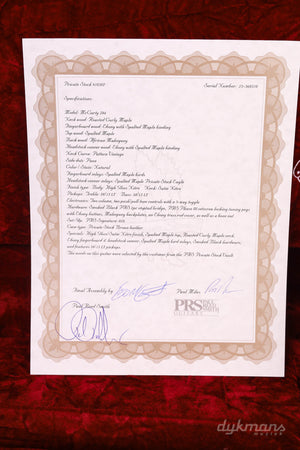 Private Stock
Serial Number:
Specifications:
Model: McCarty 594
Neck wood: Roasted Curly Maple
Fingerboard wood: Ebony with Spalted Maple binding
Top wood: Spalted Maple
Back wood: African Mahogany
Headstock veneer wood: Ebony with Spalted Maple binding
Neck Carve: Pattern Vintage
Side dots: Pau
Color/Stain: Natural
Fingerboard inlays: Spalted Maple birds
Headstock veneer inlays: Spalted Maple Private Stock Eagle
Finish type: Body: High Gloss Nitro Neck: Satin Nitro
Pickups: Treble: 58/15 LT Bass: 58/15 LT
Electronics: Two volume, two push/pull tone controls with a 3-way toggle
Hardware: Smoked Black PRS
with Ebony buttons, Mahogany backplates, an Ebony truss rod cover, as well as a bone nut
Set-Up: PRS-Signature
Case type: Private Stock Brown leather
Specials: High Gloss Nitro finish, Spalted Maple top, Roasted Curly Maple neck,
Ebony fingerboard & headstock veneer, Spalted Maple bird inlays, Smoked Black hardware,
and features 58/15 LT pickups.
The woods on this guitar were selected by the customer from the PRS Private Stock Vault.
Final Assembly by
Paul Miles
PRS PAUL REED SMITH
GUITARS
Paul Reed Smith
dykmans
muziek